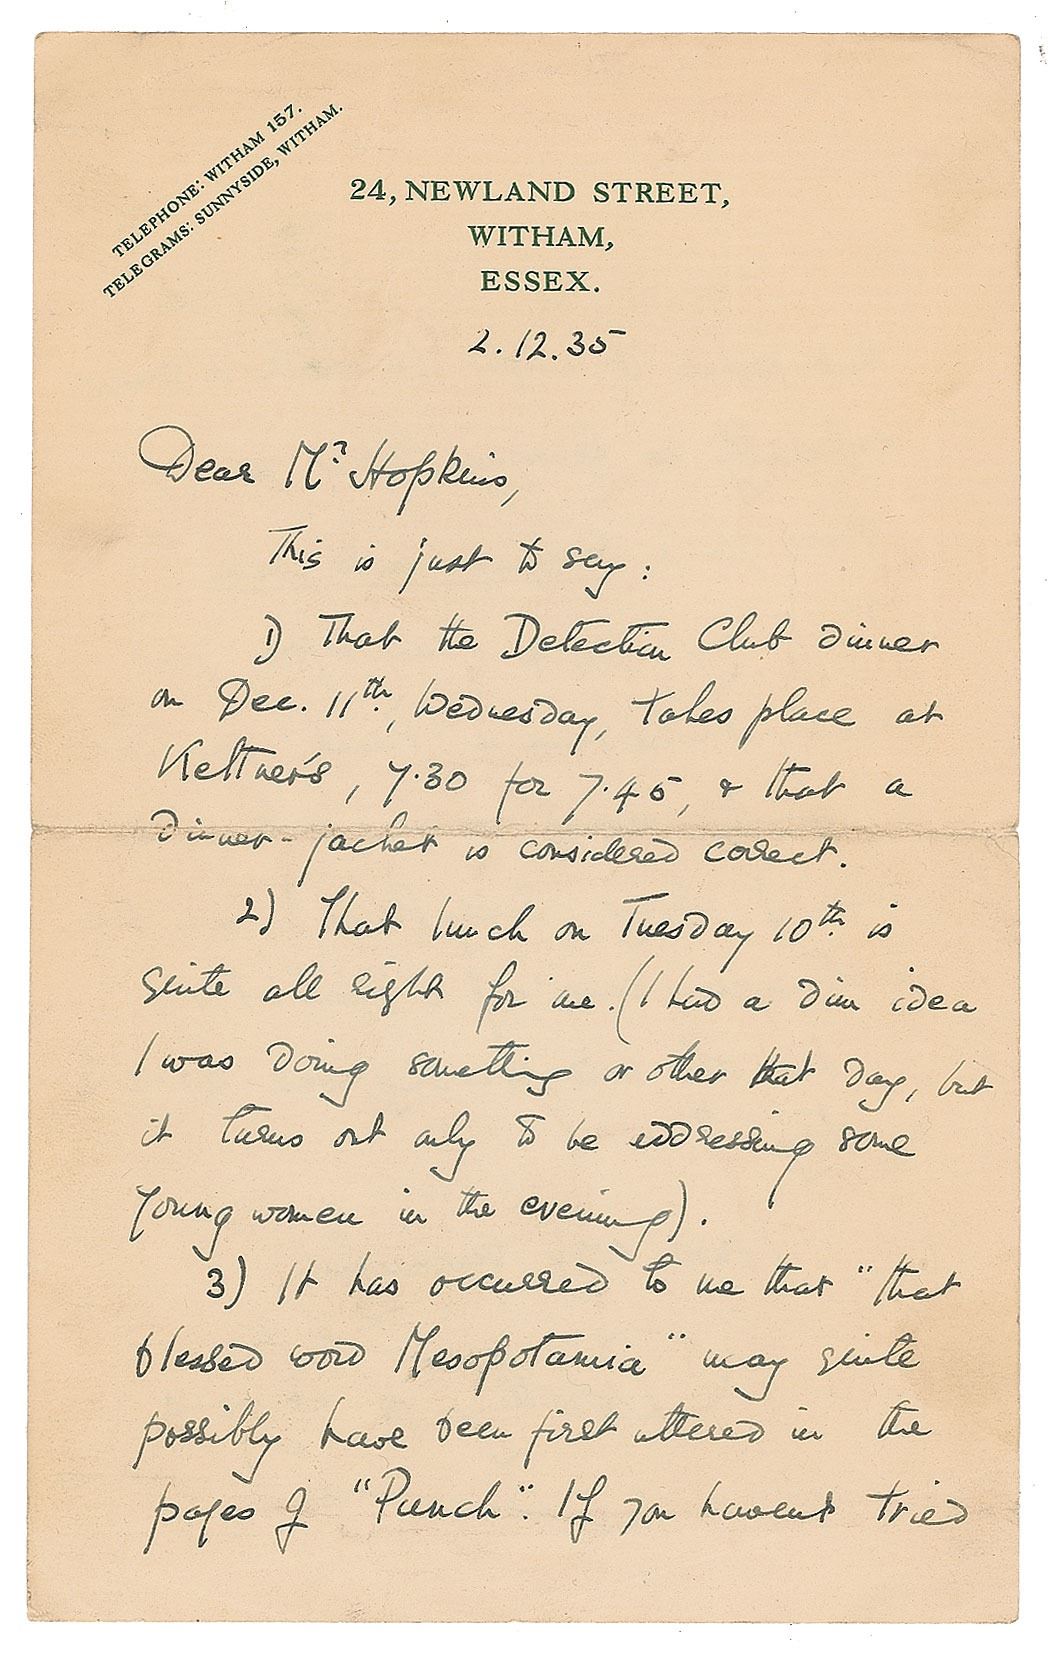 TELEPHONE: WITHAM 157.
TELEGRAMS: SUNNYSIDE, WITHAM.
24, NEWLAND STREET,
WITHAM,
ESSEX.
2.12.35
Dear Mr Hopkins,
This is just to say:
1) That the Detection Club dinner
on Dec. 11th, Wednesday, takes place at
Kettner's, 7.30 for 7.45, & that a
dinner-jacket is considered correct.
2) That lunch on Tuesday 10th is
quite all right for me. (I had a dim idea
I was doing something or other that day, but
it turns out only to be addressing some
young women in the evening).
3) It has occurred to me that "that
blessed word Mesopotamia" may quite
possibly have been first uttered in the
pages of "Punch". If you havent tried